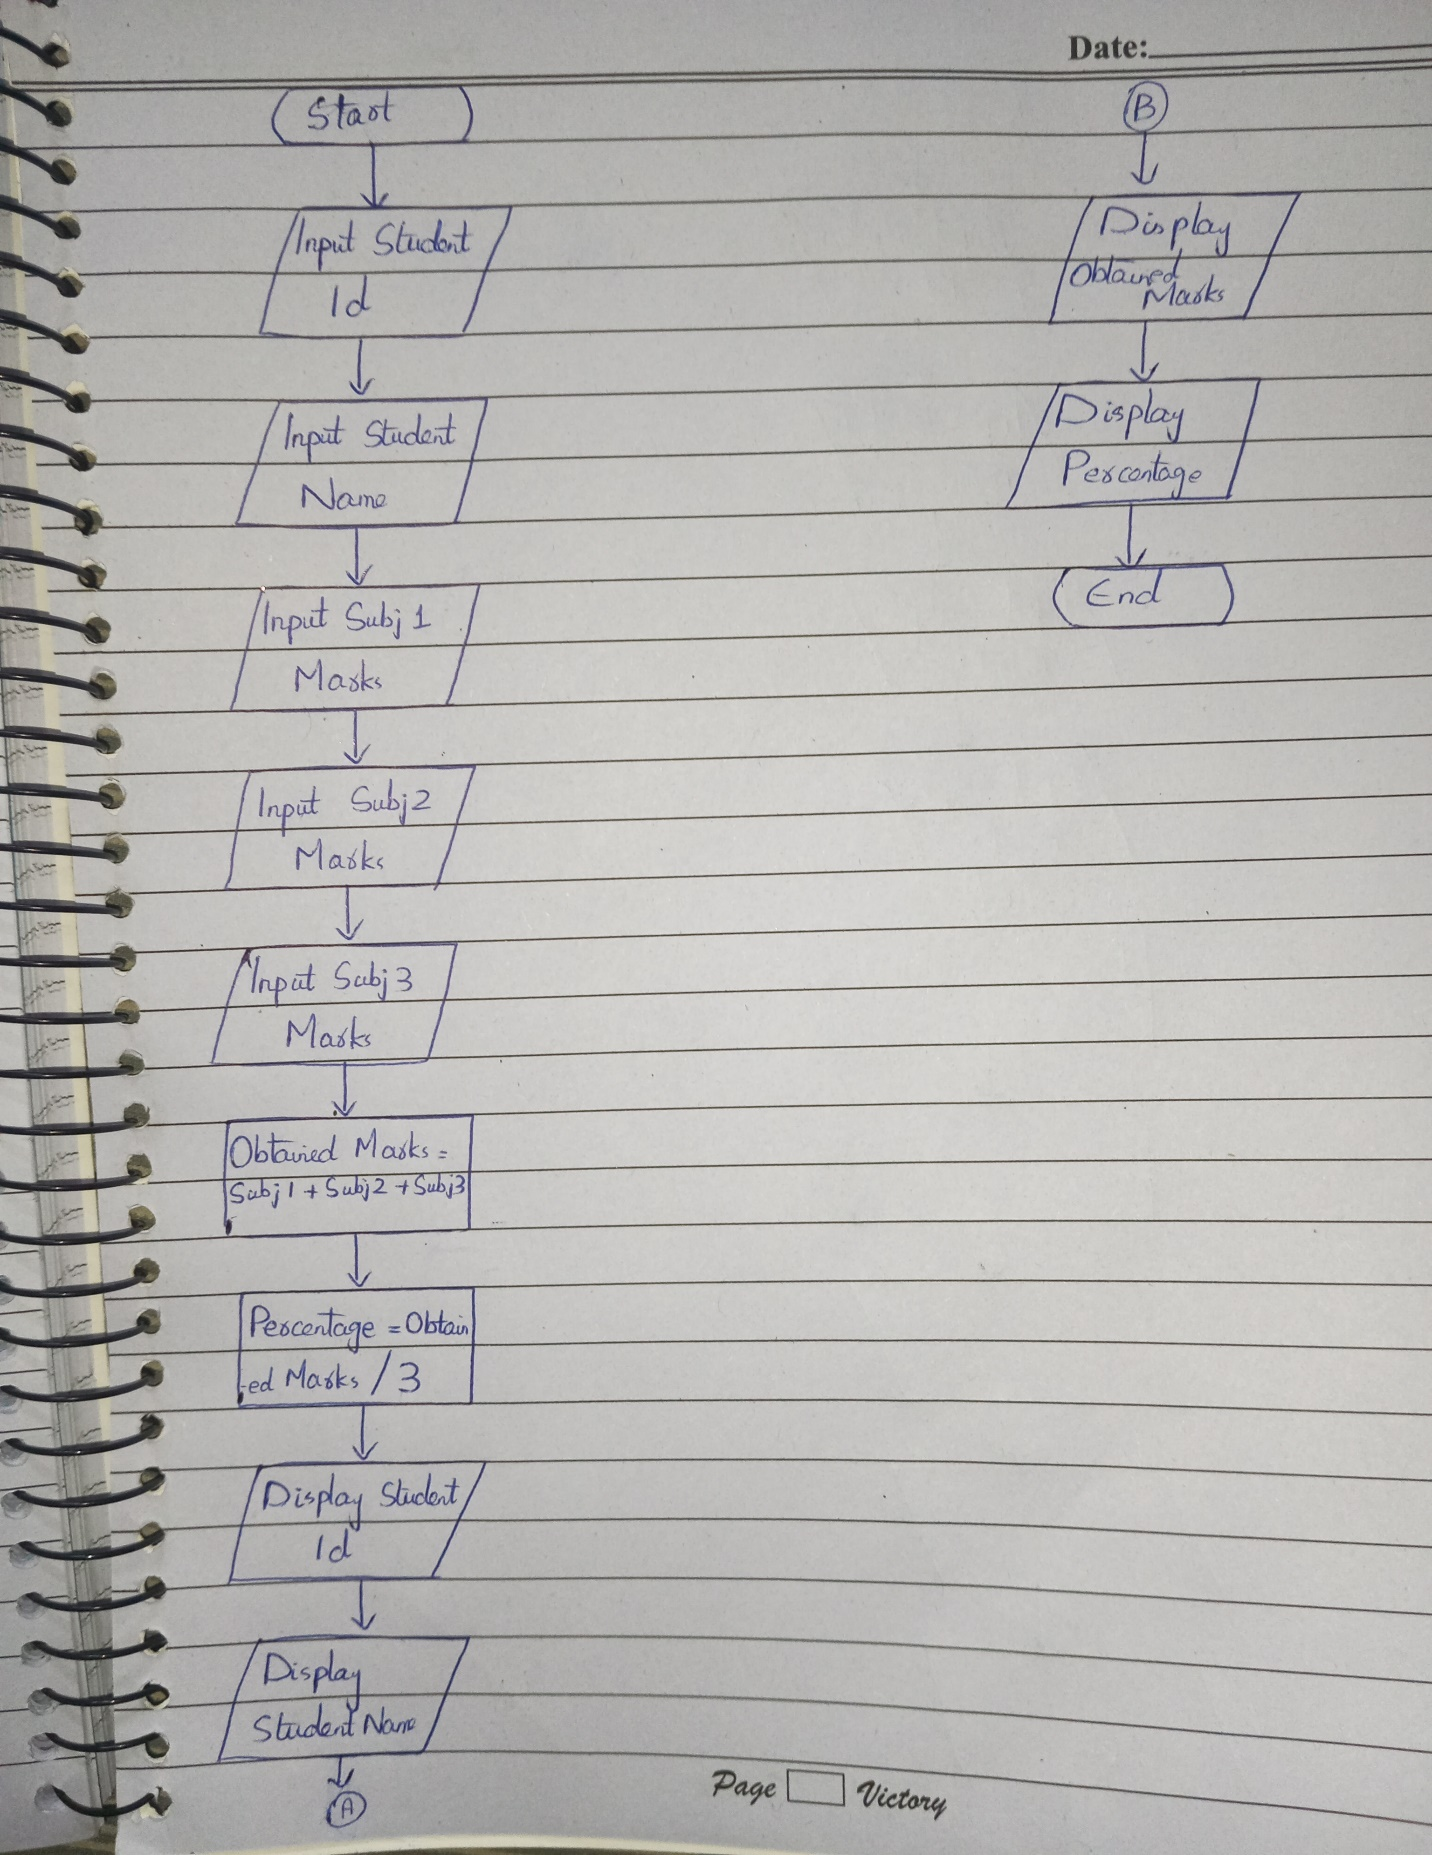 Date:
Start
Input Student
Id
Input Student
Name
Input Subj 1
Marks
Input Subj2
Marks
Input Subj3
Marks
Obtained Marks =
Subj1 + Subj2 + Subj3
Percentage = Obtain
-ed Marks / 3
Display Student
Id
Display
Student Name
A
B
Display
Obtained
Marks
Display
Percentage
End
Page Victory